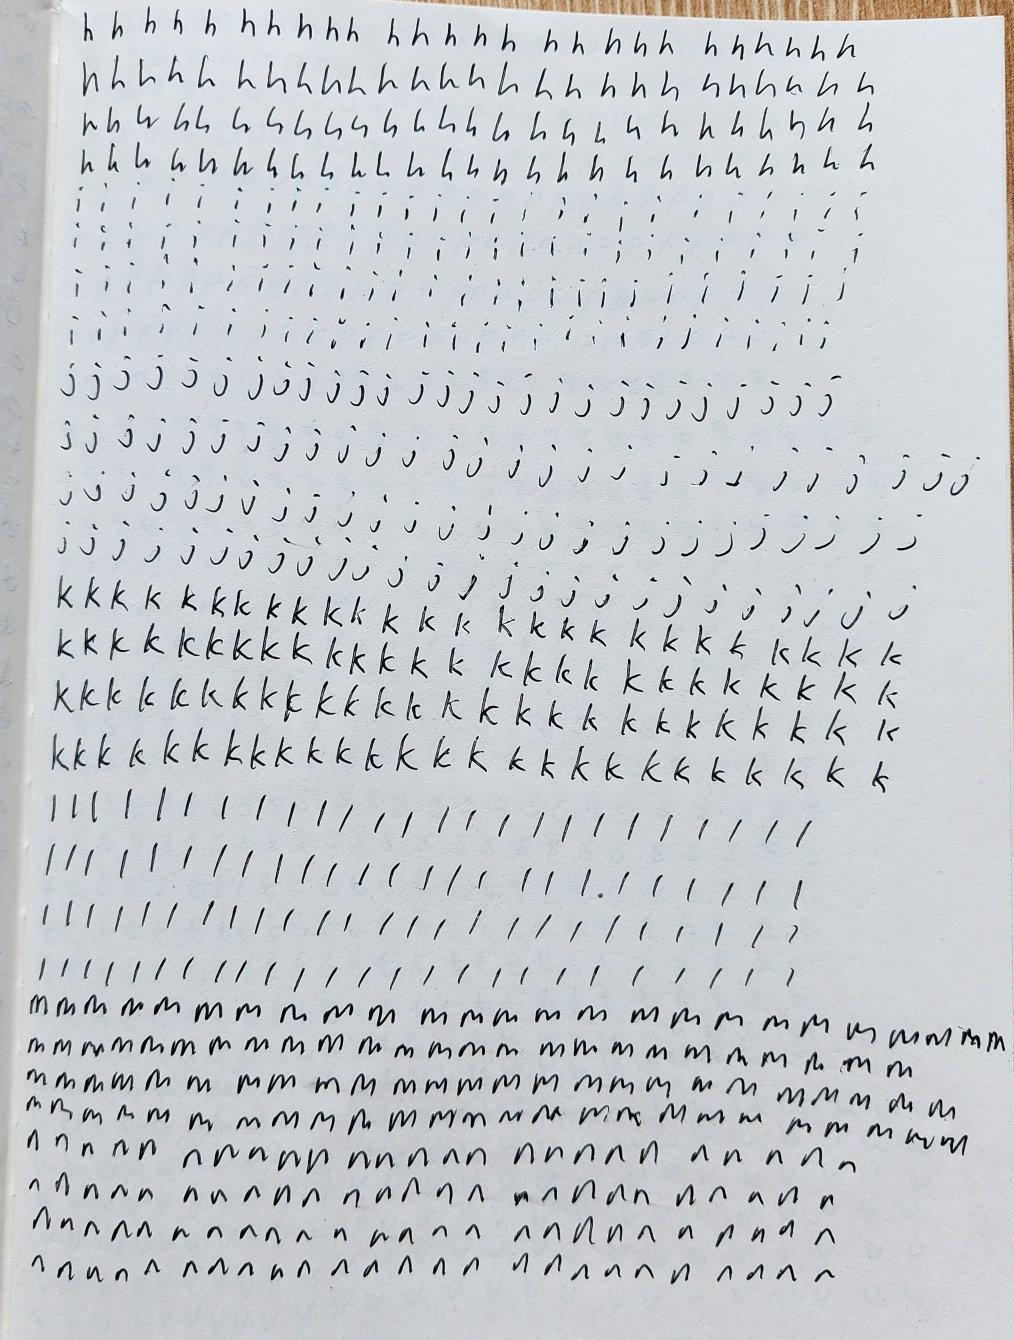 h h h h h h h h h h h h h h h h h h h h h h h h h h
h h h h h h h h h h h h h h h h h h h h h h h h h h h
h h h h h h h h h h h h h h h h h h h h h h h h h h
h h h h h h h h h h h h h h h h h h h h h h h h h h
i i i i i i i i i i i i i i i i i i i i i i i i i i
i i i i i i i i i i i i i i i i i i i i i i i i i
i i i i i i i i i i i i i i i i i i i i i i i i i i
i i i i i i i i i i i i i i i i i i i i i i i i i i
j j j j j j j j j j j j j j j j j j j j j j j j j j
j j j j j j j j j j j j j j j j j j j j j j j j j j j j
j j j j j j j j j j j j j j j j j j j j j j j j j j
j j j j j j j j j j j j j j j j j j j j j j j j j j
k k k k k k k k k k k k k k k k k k k k k k k k k k
k k k k k k k k k k k k k k k k k k k k k k k k k k
k k k k k k k k k k k k k k k k k k k k k k k k k k
k k k k k k k k k k k k k k k k k k k k k k k k k k
l l l l l l l l l l l l l l l l l l l l l l l l l
l l l l l l l l l l l l l l l l l l l l l l l l
l l l l l l l l l l l l l l l l l l l l l l l l
l l l l l l l l l l l l l l l l l l l l l l l l
m m m m m m m m m m m m m m m m m m m m m m m m m m
m m m m m m m m m m m m m m m m m m m m m m m m m m
m m m m m m m m m m m m m m m m m m m m m m m m m m
m m m m m m m m m m m m m m m m m m m m m m m m m m
n n n n n n n n n n n n n n n n n n n n n n n n
n n n n n n n n n n n n n n n n n n n n n n n n
n n n n n n n n n n n n n n n n n n n n n n n n
n n n n n n n n n n n n n n n n n n n n n n n n